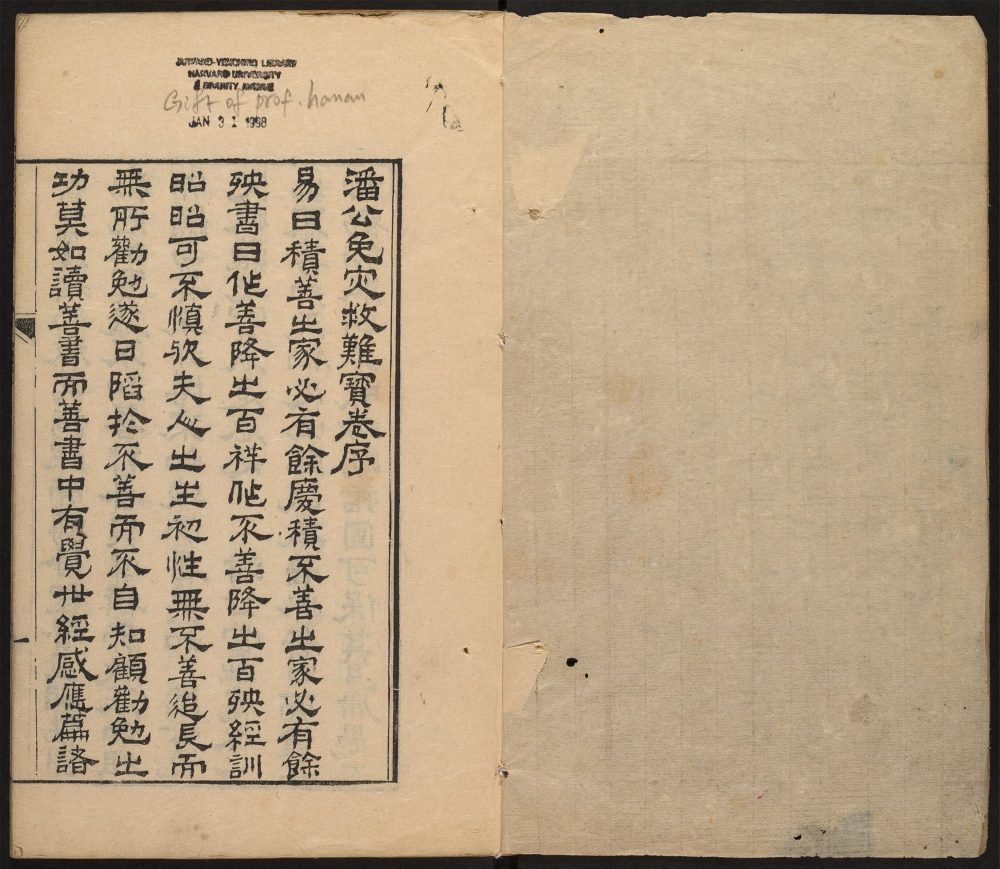 HARVARD-YENCHING LIBRARY
HARVARD UNIVERSITY
2 DIVINITY AVENUE
Gift of prof. hanan
JAN 31 1998
潘公免灾救難寶卷序
易曰積善㞢家必有餘慶積不善㞢家必有餘
殃書曰作善降㞢百祥作不善降㞢百殃經訓
昭昭可不慎歟夫人㞢生初性無不善迨長而
無所勸勉遂日陷於不善而不自知顧勸勉㞢
功莫如讀善書而善書中有覺世經感應篇諸